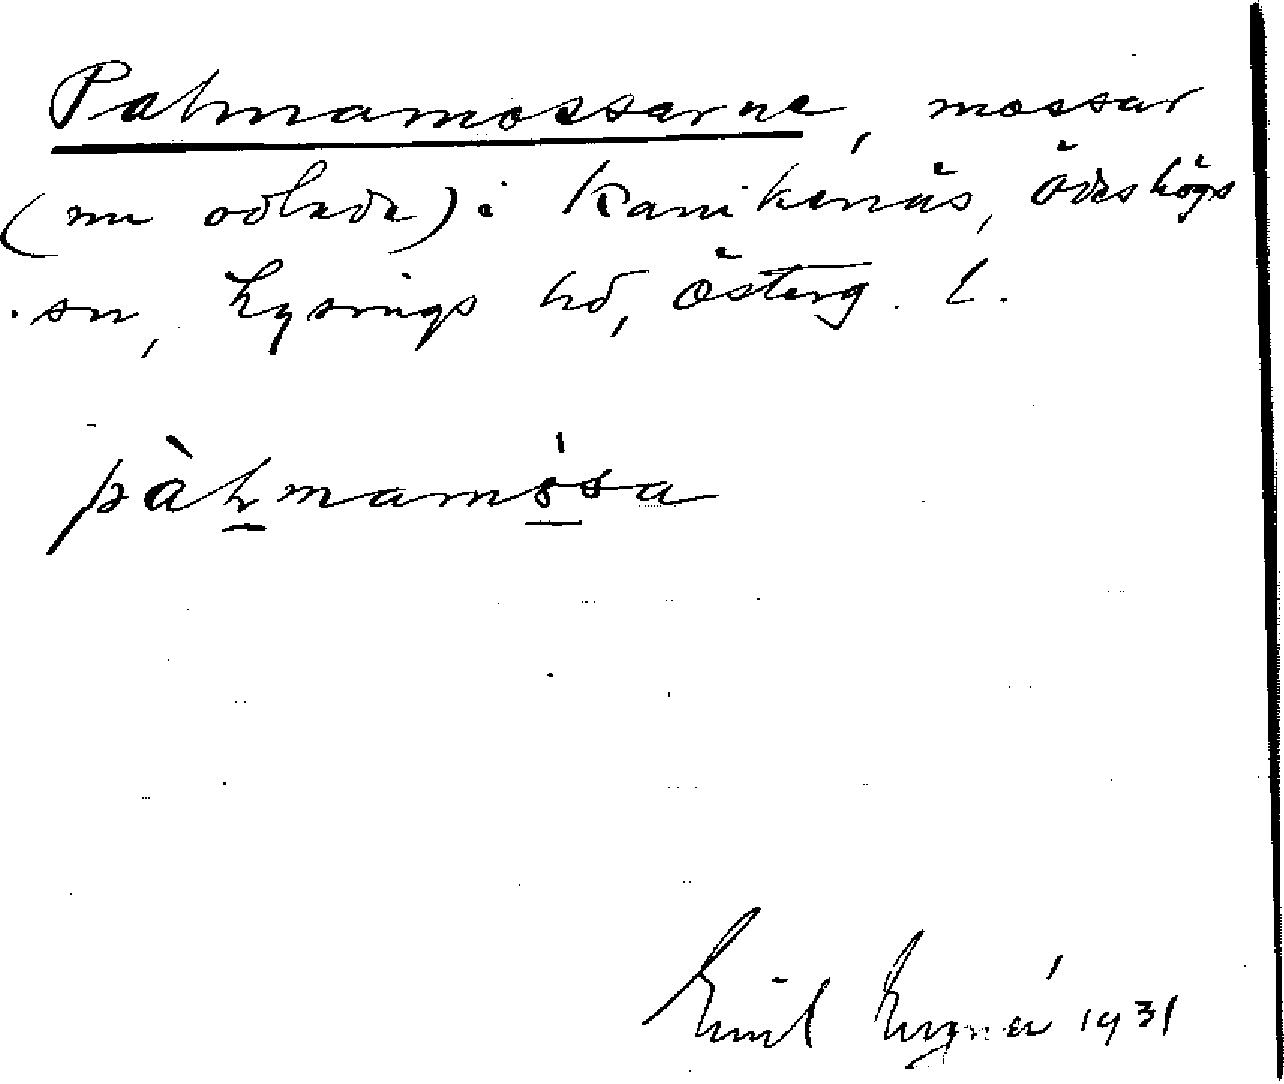 Palmamossarne, mossar
(nu odlade) i Kanikenäs, Ödeshögs
sn, Lysings hd, Österg. l.
pàlmamósa
Emil 1931